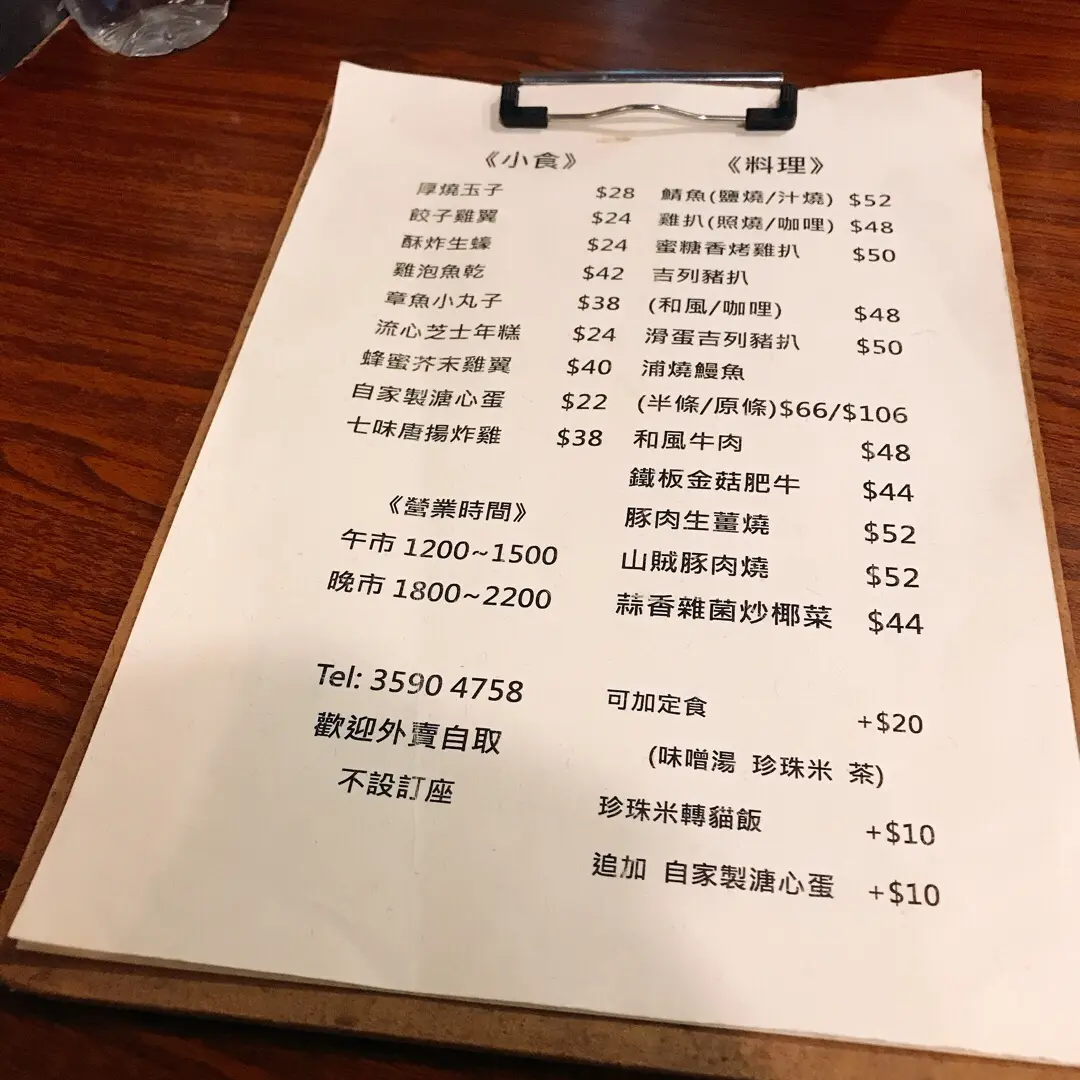 《小食》
厚燒玉子 $28
餃子雞翼 $24
酥炸生蠔 $24
雞泡魚乾 $42
章魚小丸子 $38
流心芝士年糕 $24
蜂蜜芥末雞翼 $40
自家製溏心蛋 $22
七味唐揚炸雞 $38
《營業時間》
午市 1200~1500
晚市 1800~2200
Tel: 3590 4758
歡迎外賣自取
不設訂座
《料理》
鯖魚(鹽燒/汁燒) $52
雞扒(照燒/咖哩) $48
蜜糖香烤雞扒 $50
吉列豬扒
(和風/咖哩) $48
滑蛋吉列豬扒 $50
浦燒鰻魚
(半條/原條)$66/$106
和風牛肉 $48
鐵板金菇肥牛 $44
豚肉生薑燒 $52
山賊豚肉燒 $52
蒜香雜菌炒椰菜 $44
可加定食 +$20
(味噌湯 珍珠米 茶)
珍珠米轉貓飯 +$10
追加 自家製溏心蛋 +$10